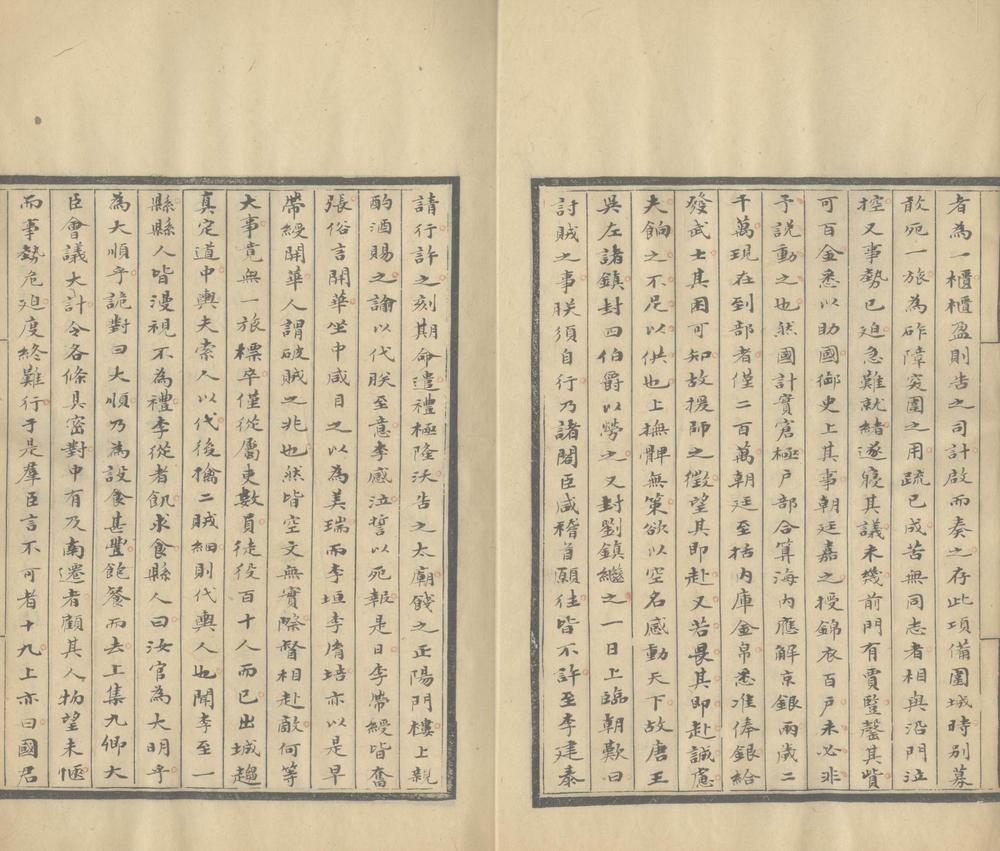 者為一櫃櫃盈則告之司計啟而奏之存此項備圍城時別募
敢死一旅為砟障突圍之用疏已成苦無同志者相與沿門泣
控又事勢已迫急難就緒遂寢其議未幾前門有賈豎罄其貲
可百金悉以助國御史上其事朝廷嘉之授錦衣百戶未必非
予說動之也然國計實窘極戶部合算海內應解京銀兩歲二
千萬現在到部者僅二百萬朝廷至括內庫金帛悉准俸銀給
發武士其困可知故援師之徵望其即赴又若畏其即赴誠慮
夫餉之不足以供也上撫髀無策欲以空名感動天下故唐王
吳左諸鎮封四伯爵以勞之又封劉鎮繼之一日上臨朝歎曰
討賊之事朕須自行乃諸閣臣咸稽首願往皆不許至李建泰
請行許之刻期命遣禮極隆沃告之太廟餞之正陽門樓上親
酌酒賜之諭以代朕至意李感泣誓以死報是日李帶綬皆奮
張俗言開華坐中咸目之以為美瑞而李垣李膺培亦以是早
帶綬開華人謂破賊之兆也然皆空文無實際督相赴敵何等
大事竟無一旅標卒僅從屬吏數員徒役百十人而已出城趨
真定道中輿夫索人以代後擒二賊細則代輿人也聞李至一
縣縣人皆漫視不為禮李從者飢求食縣人曰汝官為大明乎
為大順乎詭對曰大順乃為設食甚豐飽餐而去上集九卿大
臣會議大計令各條具密對中有及南遷者顧其人物望未愜
而事勢危迫度終難行于是羣臣言不可者十九上亦曰國君